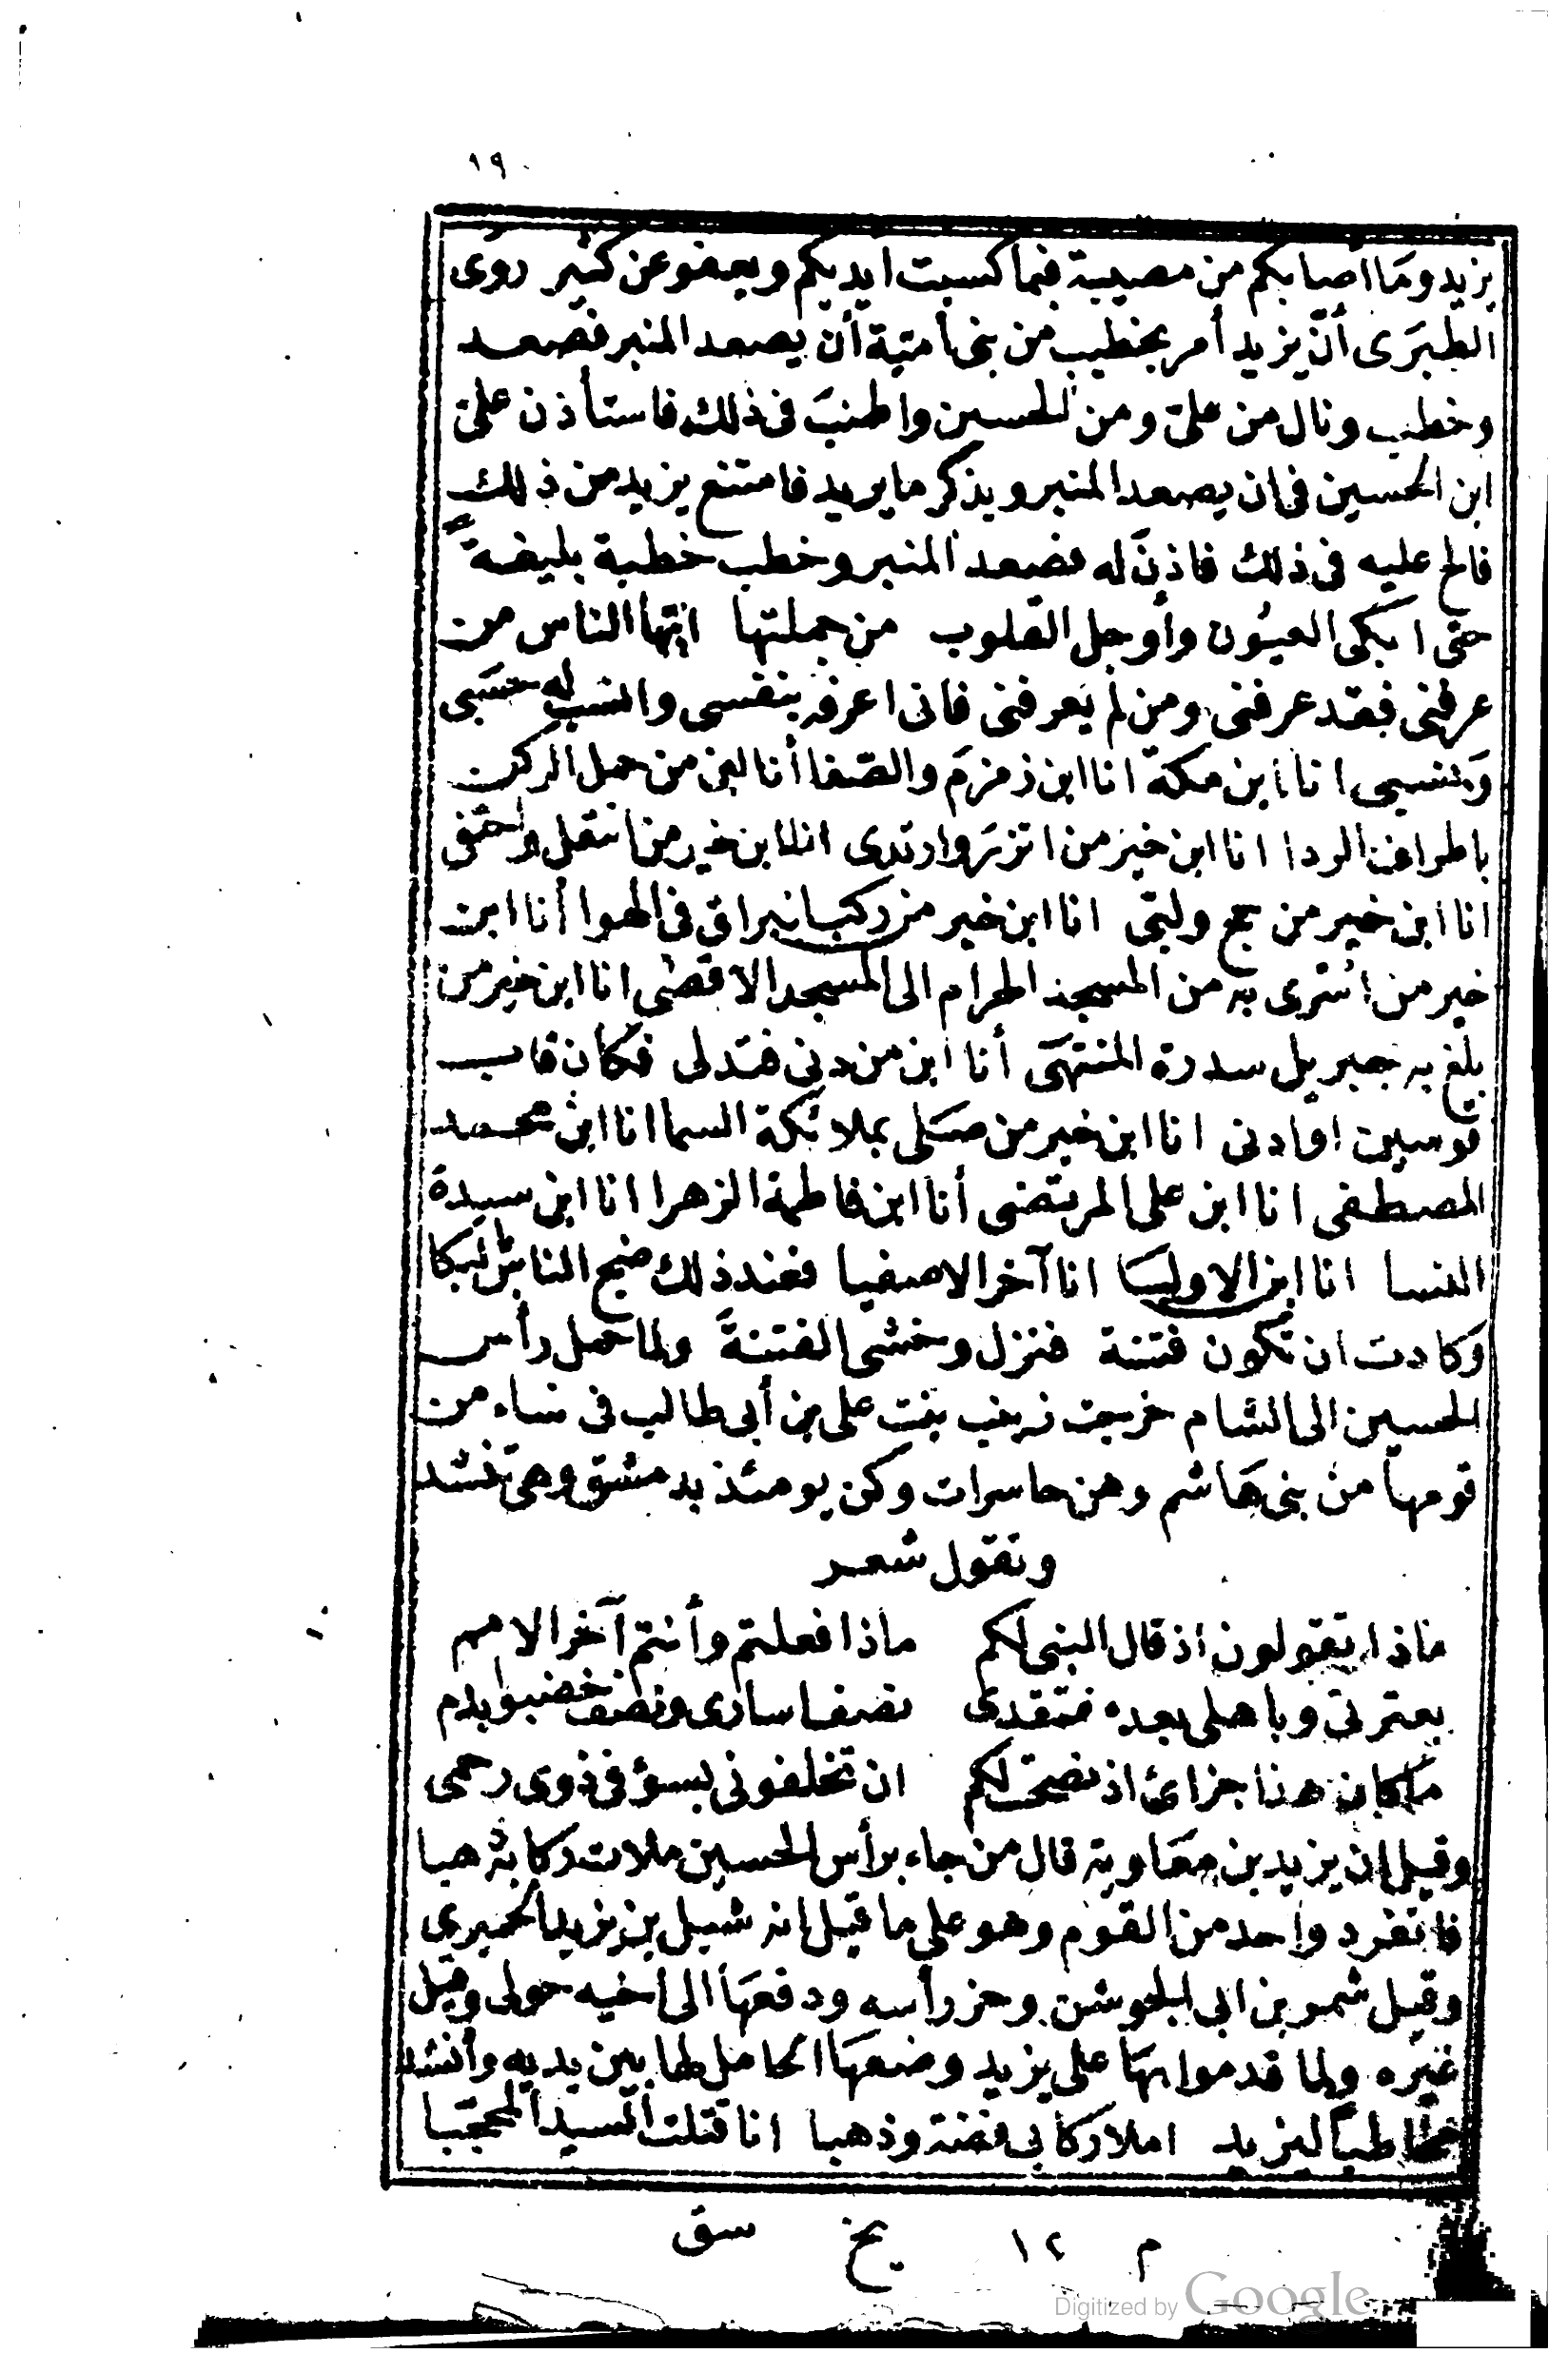 ١٩
يزيد ومَا أصابكم من مصيبة فبما كسبت ايديكم ويعفو عن كثير روى
الطبَرَى أنّ يزيد أمر بخطيب من بنى أمتية أن يصعد المنبر فصعد
وخطب ونال من علىّ ومن الحسين واطنبَ فى ذلك فاستأذن علىّ
ابن الحسين فى ان يصعد المنبر ويذكر ما يريد فامتنع يزيد من ذلك
فالح عليه فى ذلك فاذنَ له فصعد المنبر وخطب خطبة بليغةً
حتى ابكى العيُون وأوجل القلوب من جملتها ايّها الناس من
عرفنى فقد عرفنى ومن لم يعرفنى فانى اعرفه بنفسى وانسب له حسَبى
وَنسبى انا ابن مكة انا ابن زمزمَ والصّفا أنا ابن من حمل الركن
باطراف الردا انا ابن خير من اتزرَ وارتدى انا ابن خير من انتعل واحتفى
انا ابن خير من حج ولبّى انا ابن خير من ركب البراق فى الهوا أنا ابن
خير من اسْرى به من المسجد الحرام الى المسجد الاقصٰى انا ابن خير من
بلغ به جبريل سدرة المنتهَى أنا ابن من دنى فتدلى فكان قاب
قوسين اوادنى انا ابن خير من صَلى بملائكة السما انا ابن محمد
المصطفى انا ابن على المرتضى أنا ابن فاطمة الزهرا انا ابن سيدة
النسا انا ابن الاوليَا انا آخر الاصفيا فعند ذلك ضج الناس بالبكا
وكادت ان تكون فتنة فنزل وخشى الفتنةَ ولما حمل رأس
الحسين الى الشام خرجت زينب بنت على بن أبى طالب فى نساء من
قومها من بنى هَاشم وهن حاسرات وكن يومئذ بدمشق وهى تنشد
وتقول شعر
ماذا تقولون اذ قال النبى لكم ماذا فعلتم وأنتم آخر الامم
بعترتى وباهلى بعده فتقدى نصفا سارى ونصف خضبوا بدم
ما كان هذا جزائ اذ نصحت لكم ان تخلفونى بسؤ فى ذوى رحمى
وقيل ان يزيد بن معَاوية قال من جاء برأس الحسين ملات ركابه ذهبا
فانفرد واحد من القوم وهو على ما قيل انه شبل بن يزيد الحميرى
وقيل شمر بن ابى الجوشن وحز رأسه ودفعهَا الى اخيه حولى وقيل
غيره ولما قدموا بهَا على يزيد وضعهَا الحامل لها بين يديه وأنشد
خاطبا ليزيد املا ركابى فضة وذهبا انا قتلت السيد المحجّبا
م ١٢ يخ سق
Digitized by Google